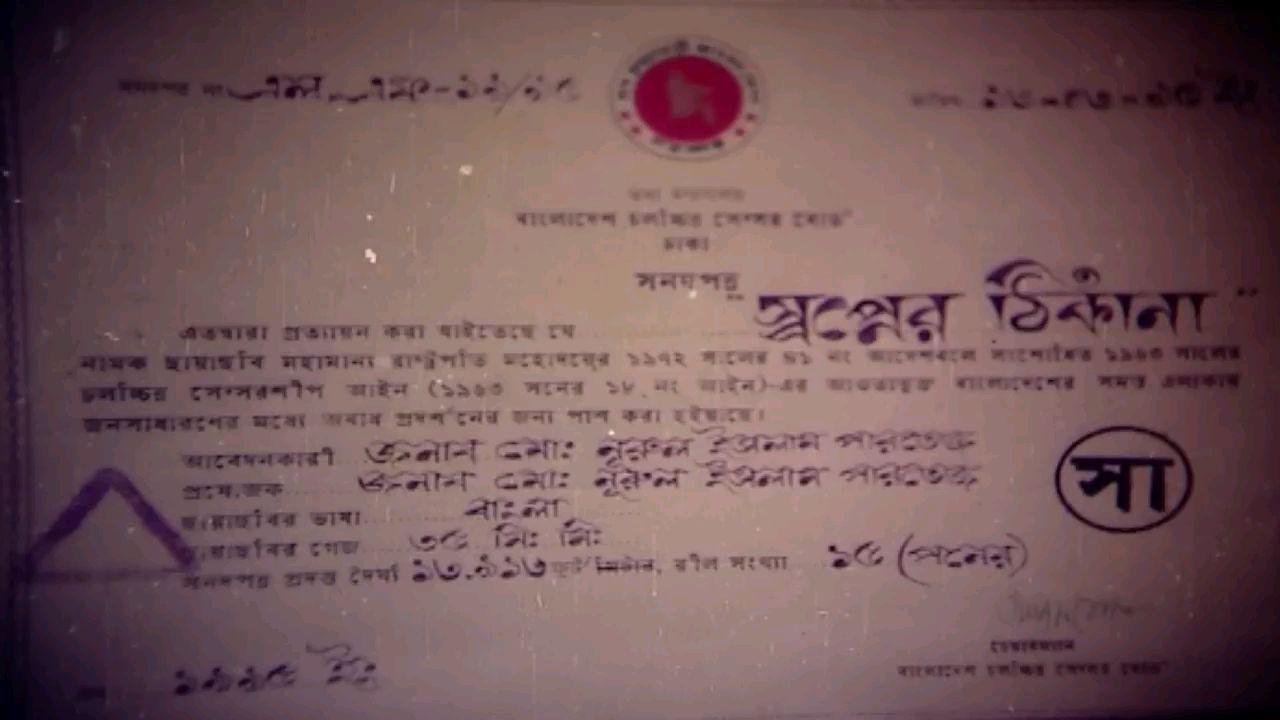 সনদপত্র নং এল, এফ-১২/৯৫
তথ্য মন্ত্রণালয়
বাংলাদেশ চলচ্চিত্র সেন্সর বোর্ড
ঢাকা
সনদপত্র
এতদ্বারা প্রত্যায়ন করা যাইতেছে যে "স্বপ্নের ঠিকানা"
নামক ছায়াছবি মহামান্য রাষ্ট্রপতি মহোদয়ের ১৯৭২ সালের ৪১ নং আদেশবলে সংশোধিত ১৯৬৩ সালের
চলচ্চিত্র সেন্সরশীপ আইন (১৯৬৩ সনের ১৮ নং আইন)-এর আওতাভুক্ত বাংলাদেশের সমগ্র এলাকায়
জনসাধারণের মধ্যে অবাধ প্রদর্শনের জন্য পাশ করা হইয়াছে।
আবেদনকারী জনাব মোঃ নূরুল ইসলাম পারভেজ
প্রযোজক জনাব মোঃ নূরুল ইসলাম পারভেজ
ছায়াছবির ভাষা বাংলা
ছায়াছবির গেজ ৩৫ মিঃ মিঃ
সনদপত্র প্রদত্ত দৈর্ঘ্য ১৩,৯১৩ ফুট/মিটার, রীল সংখ্যা ১৫ (পনের)
সা
চেয়ারম্যান
বাংলাদেশ চলচ্চিত্র সেন্সর বোর্ড
১৯৯৫ ইং